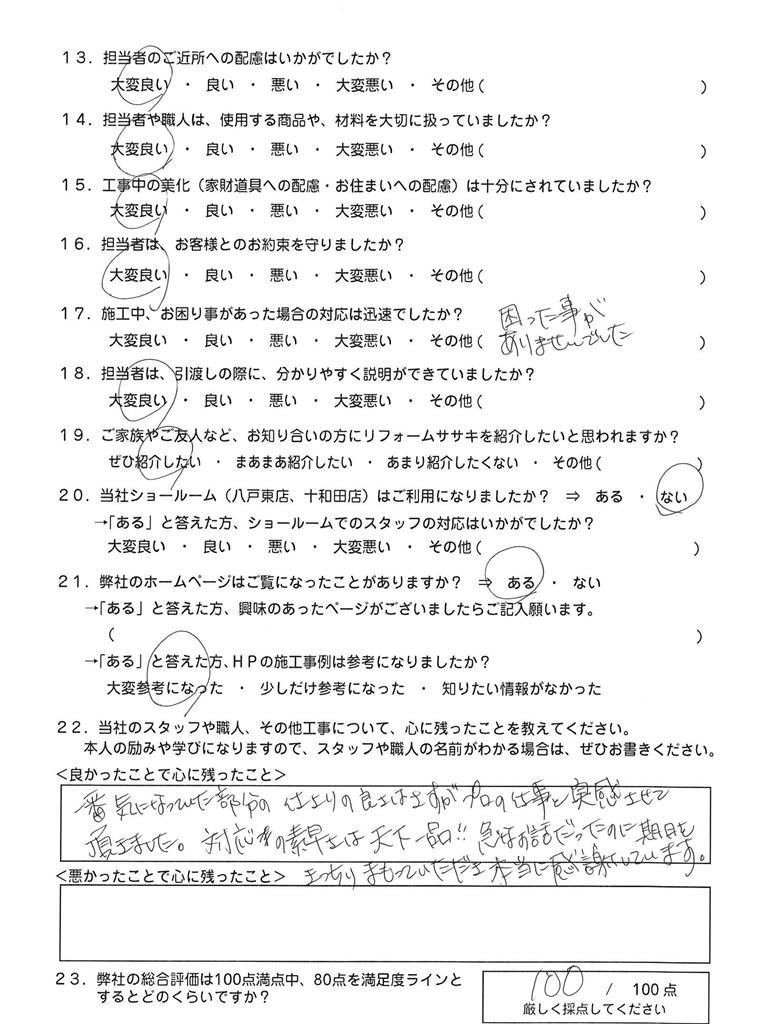 13．担当者のご近所への配慮はいかがでしたか？
大変良い ・ 良い ・ 悪い ・ 大変悪い ・ その他（ ）
14．担当者や職人は、使用する商品や、材料を大切に扱っていましたか？
大変良い ・ 良い ・ 悪い ・ 大変悪い ・ その他（ ）
15．工事中の美化（家財道具への配慮・お住まいへの配慮）は十分にされていましたか？
大変良い ・ 良い ・ 悪い ・ 大変悪い ・ その他（ ）
16．担当者は、お客様とのお約束を守りましたか？
大変良い ・ 良い ・ 悪い ・ 大変悪い ・ その他（ ）
17．施工中、お困り事があった場合の対応は迅速でしたか？
大変良い ・ 良い ・ 悪い ・ 大変悪い ・ その他（ 困った事が
ありませんでした ）
18．担当者は、引渡しの際に、分かりやすく説明ができていましたか？
大変良い ・ 良い ・ 悪い ・ 大変悪い ・ その他（ ）
19．ご家族やご友人など、お知り合いの方にリフォームササキを紹介したいと思われますか？
ぜひ紹介したい ・ まあまあ紹介したい ・ あまり紹介したくない ・ その他（ ）
20．当社ショールーム（八戸東店、十和田店）はご利用になりましたか？ ⇒ ある ・ ない
→「ある」と答えた方、ショールームでのスタッフの対応はいかがでしたか？
大変良い ・ 良い ・ 悪い ・ 大変悪い ・ その他（ ）
21．弊社のホームページはご覧になったことがありますか？ ⇒ ある ・ ない
→「ある」と答えた方、興味のあったページがございましたらご記入願います。
（ ）
→「ある」と答えた方、ＨＰの施工事例は参考になりましたか？
大変参考になった ・ 少しだけ参考になった ・ 知りたい情報がなかった
22．当社のスタッフや職人、その他工事について、心に残ったことを教えてください。
本人の励みや学びになりますので、スタッフや職人の名前がわかる場合は、ぜひお書きください。
＜良かったことで心に残ったこと＞
一番気になっていた部分の仕上りの良さはさすがプロの仕事と実感させて
頂きました。対応の素早さは天下一品!! 急なお話だったのに期日を
きっちりまもっていただき本当に感謝しています。
＜悪かったことで心に残ったこと＞
23．弊社の総合評価は100点満点中、80点を満足度ラインと
するとどのくらいですか？
100 / 100点
厳しく採点してください